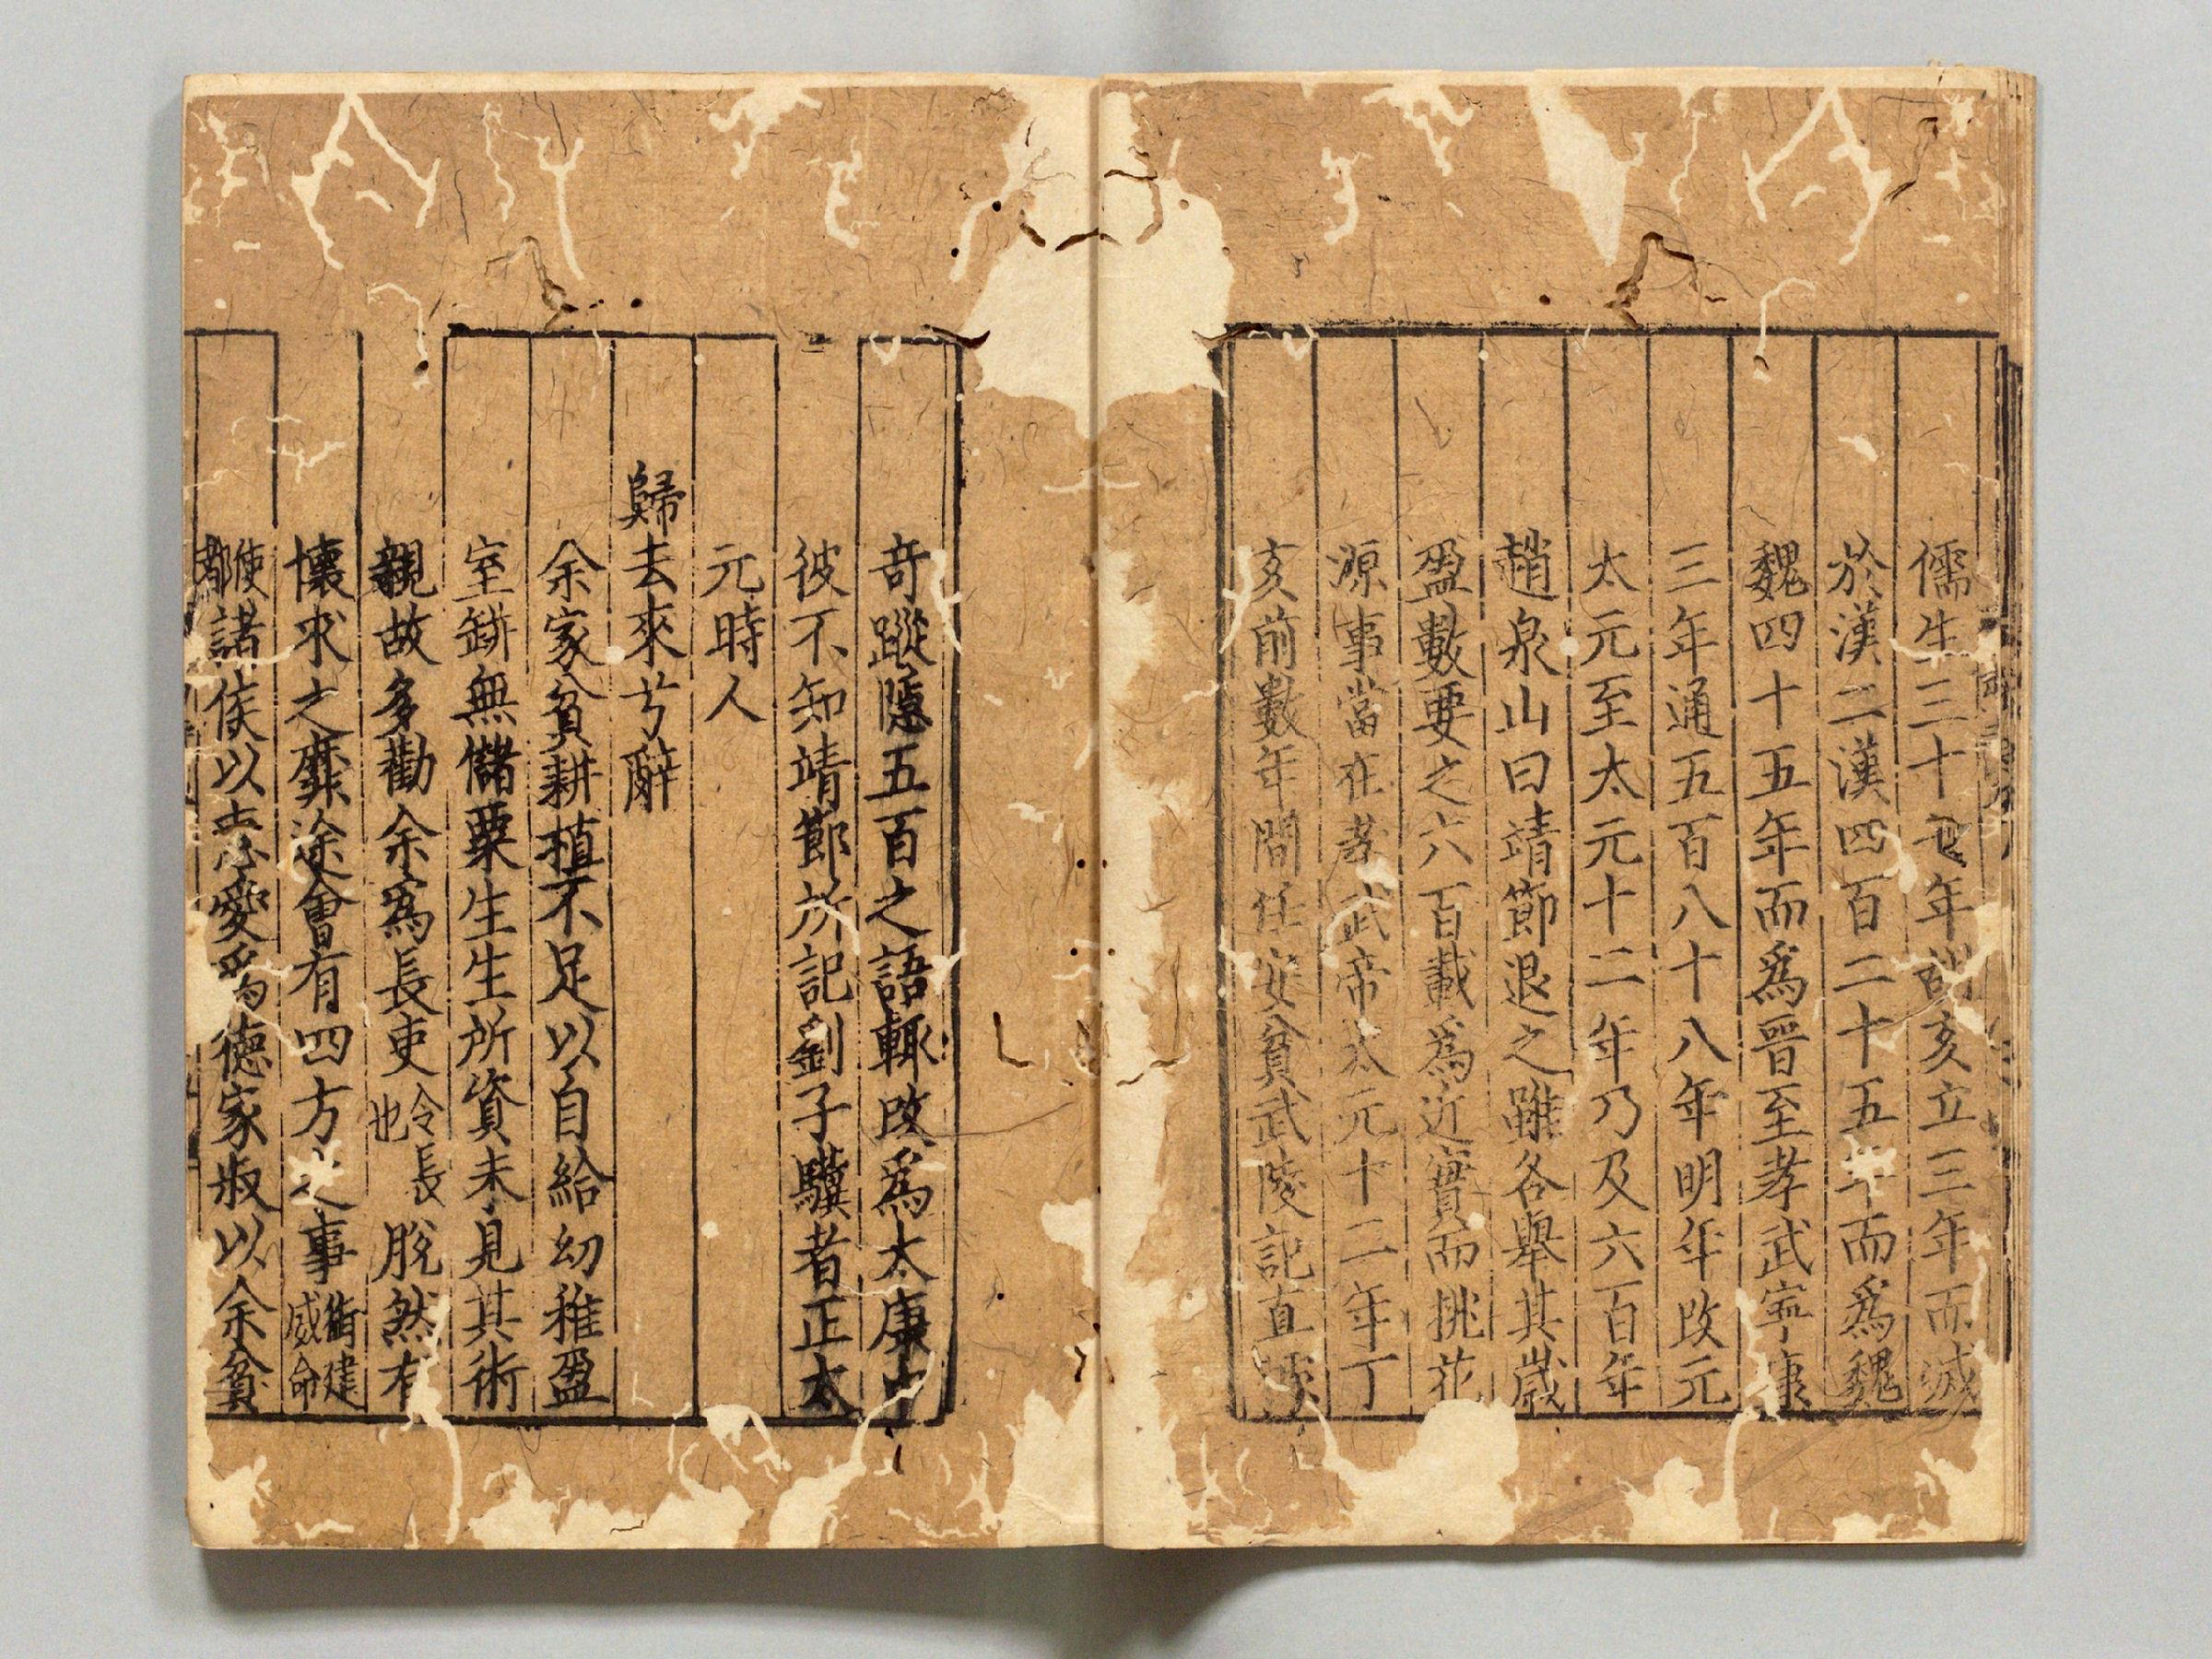 儒生三十七年胡亥立三年而滅
於漢二漢四百二十五年而爲魏
魏四十五年而爲晉至孝武寧康
三年通五百八十八年明年改元
太元至太元十二年乃及六百年
趙泉山曰靖節退之雖各舉其歲
盈數要之六百載爲近實而挑花
源事當在孝武帝太元十二年丁
亥前數年間任安貧武陵記直據
奇蹤隱五百之語輒改爲太康中
彼不知靖節所記劉子驥者正太
元時人
歸去來兮辭
余家貧耕植不足以自給幼稚盈
室缾無儲粟生生所資未見其術
親故多勸余爲長吏令長也脫然有
懷求之靡途會有四方之事衛建威命
使都諸侯以惠愛爲德家叔以余貧